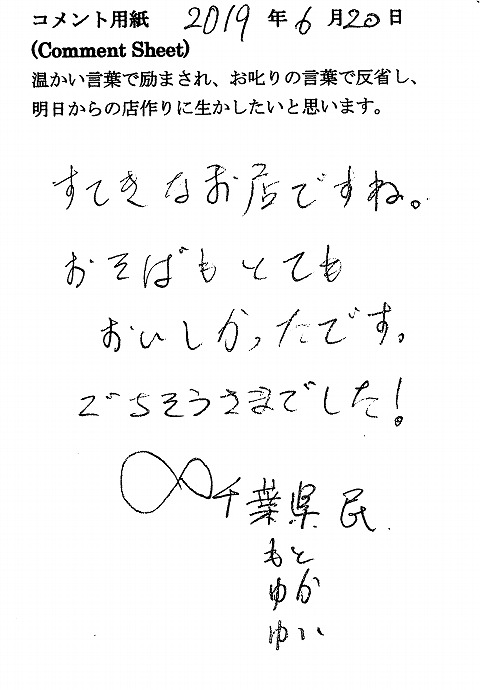 コメント用紙 2019 年 6 月 20 日
(Comment Sheet)
温かい言葉で励まされ、お叱りの言葉で反省し、
明日からの店作りに生かしたいと思います。
すてきなお店ですね。
おそばもとても
おいしかったです。
ごちそうさまでした!
千葉県民
もと
ゆか
ゆい